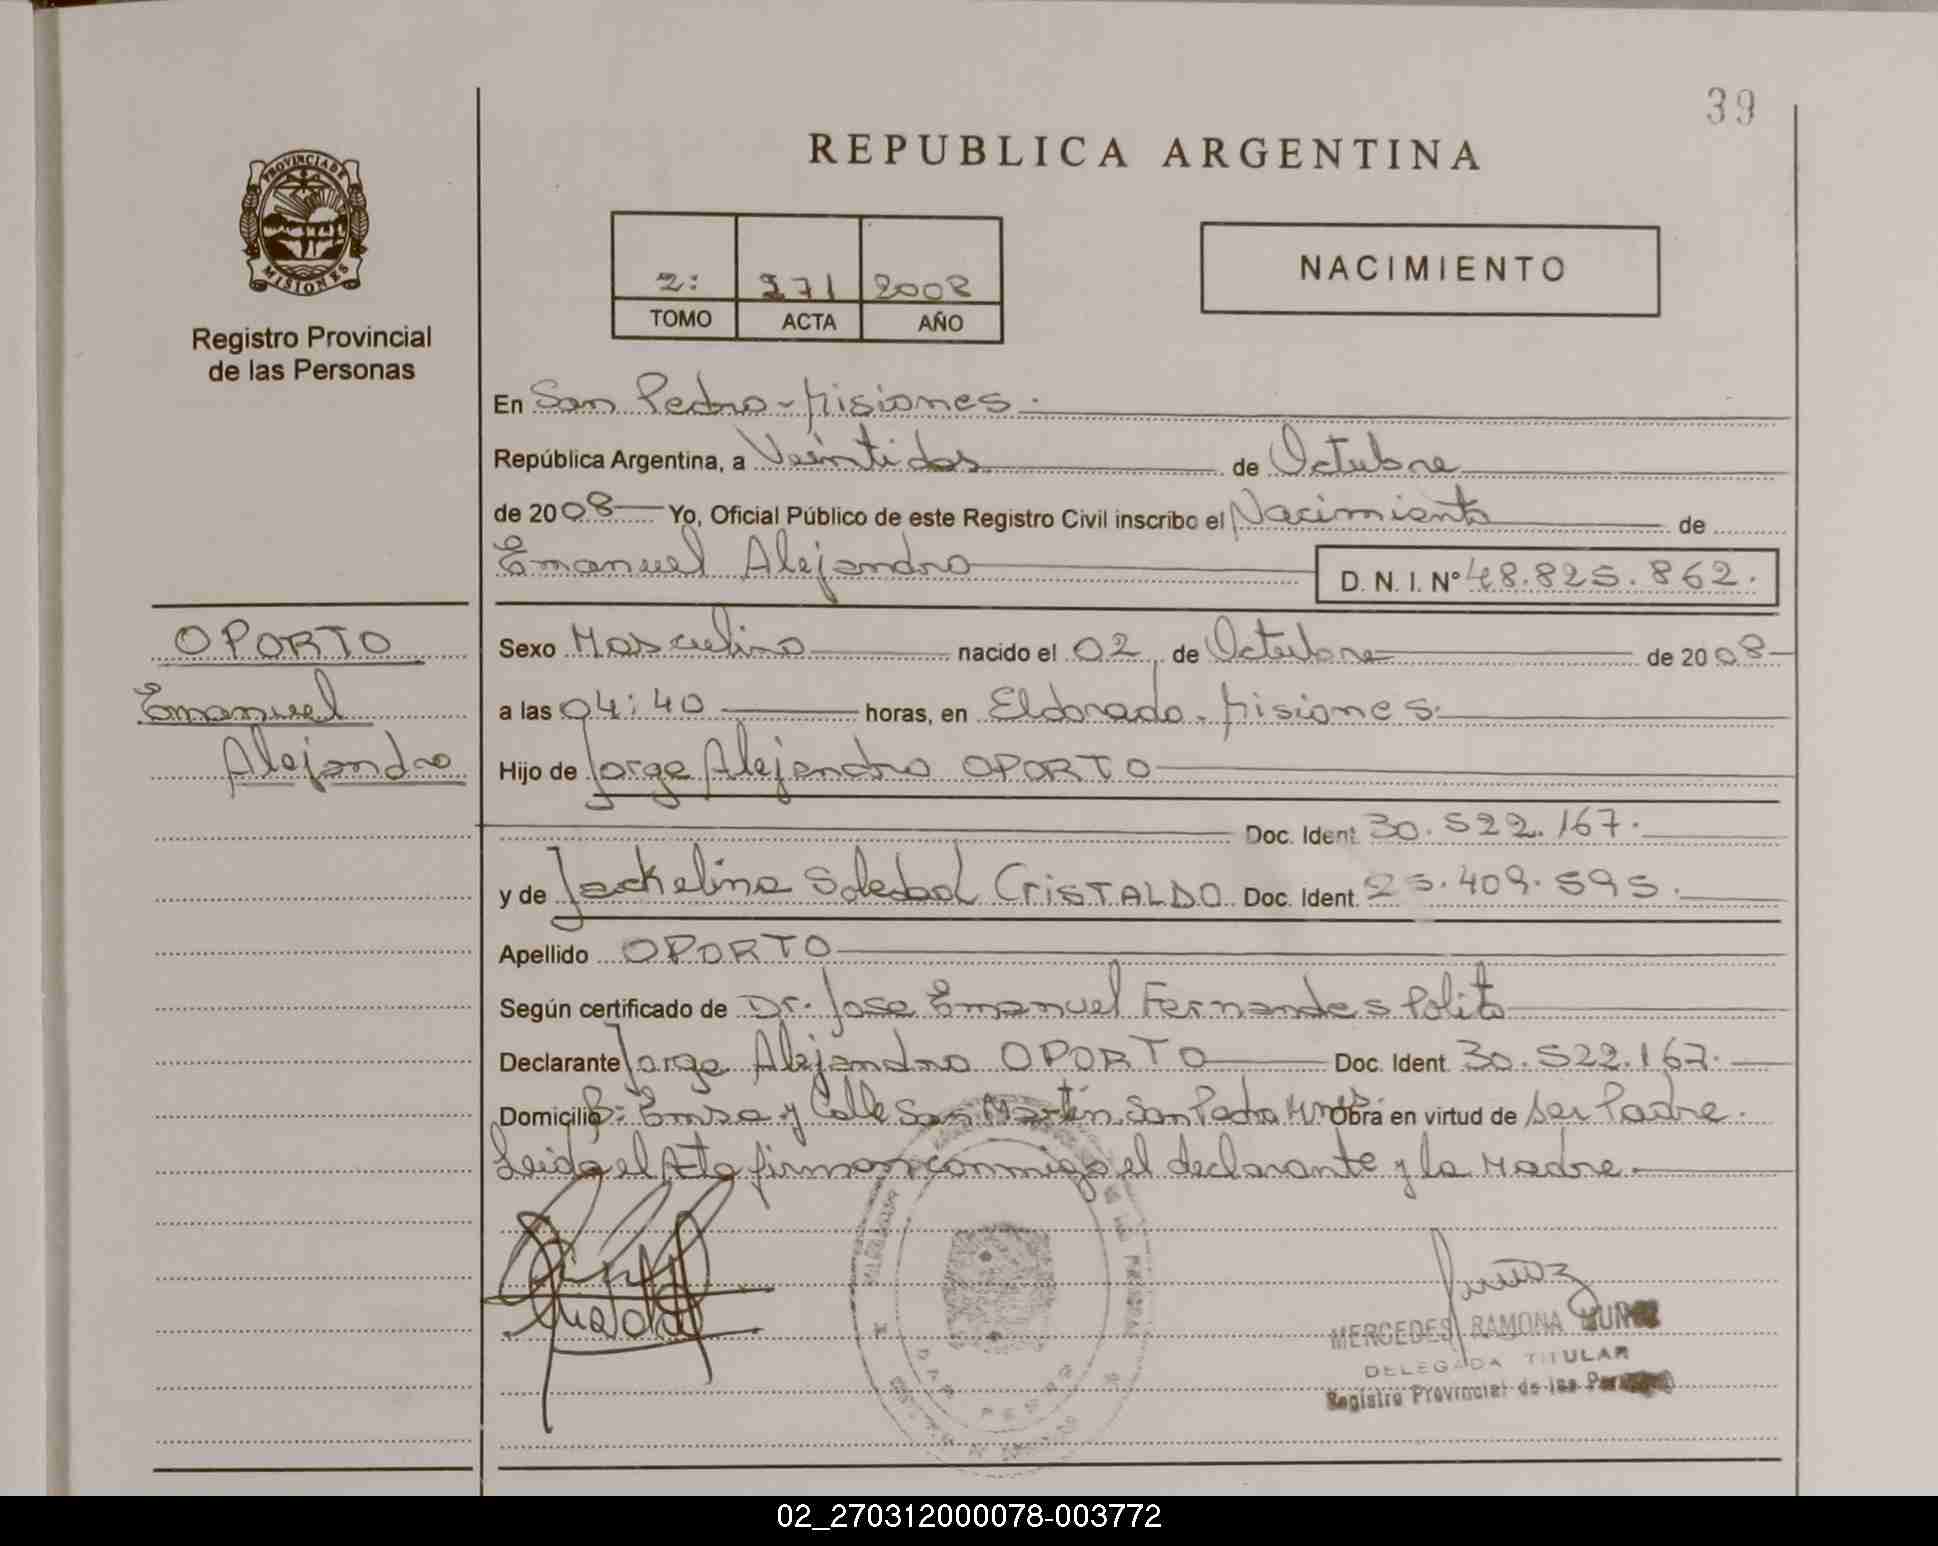 39
REPUBLICA ARGENTINA
PROVINCIA DE
MISIONES
Registro Provincial
de las Personas
2: 271 2008
TOMO ACTA AÑO
NACIMIENTO
En San Pedro - Misiones.
República Argentina, a Veintidos de Octubre
de 2008 Yo, Oficial Público de este Registro Civil inscribo el Nacimiento de
Emanuel Alejandro D. N. I. Nº 48.825.862.
OPORTO
Emanuel
Alejandro
Sexo Masculino nacido el 02 de Octubre de 2008
a las 04:40 horas, en Eldorado - Misiones.
Hijo de Jorge Alejandro OPORTO
Doc. Ident. 30.522.167.
y de Jackelina Soledad CRISTALDO Doc. Ident. 25.409.595.
Apellido OPORTO
Según certificado de Dr. Jose Emanuel Fernandes Polito
Declarante Jorge Alejandro OPORTO Doc. Ident. 30.522.167.
Domicilio B: Emsa y Calle San Martín San Pedro Mnes. Obra en virtud de ser Padre.
Leida el Acta firman conmigo el declarante y la Madre.
Muñoz
MERCEDES RAMONA MUÑOZ
DELEGADA TITULAR
Registro Provincial de las Personas
02_270312000078-003772